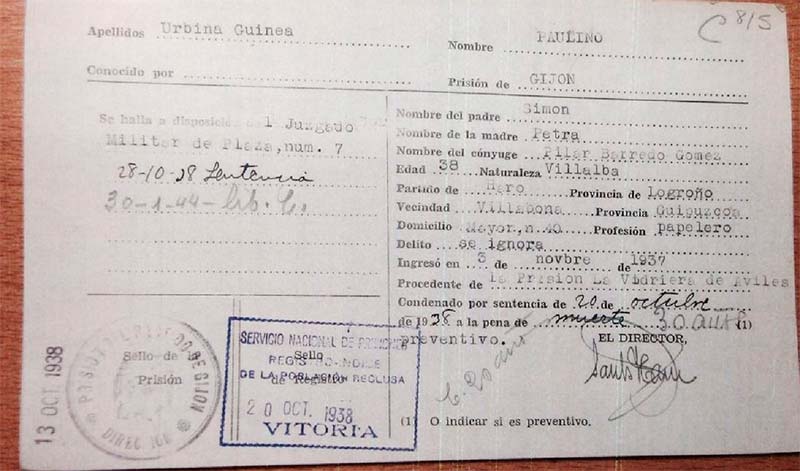 C 815
Apellidos Urbina Guinea
Nombre PAULINO
Conocido por
Prisión de GIJON
Se halla a disposición del Juzgado
Militar de Plaza, num. 7
28-10-38 Sentencia
30-1-44
Nombre del padre Simon
Nombre de la madre Petra
Nombre del cónyuge Pilar Barredo Gomez
Edad 38 Naturaleza Villalba
Partido de Haro Provincia de Logroño
Vecindad Villabona Provincia Guipuzcoa
Domicilio Mayor, n. 40 Profesión papelero
Delito se ignora
Ingresó en 3 de novbre de 1937
Procedente de la Prision La Vidriera de Aviles
Condenado por sentencia de 20 de octubre
de 1938 a la pena de muerte 30 (1)
preventivo.
EL DIRECTOR,
(1) O indicar si es preventivo.
Sello de la
Prisión
PRISION DEL PARTIDO DE GIJON
13 OCT. 1938
SERVICIO NACIONAL DE PRISIONES
Sello
REGISTRO-INDICE
DE LA POBLACIÓN RECLUSA
de Registro
20 OCT. 1938
VITORIA